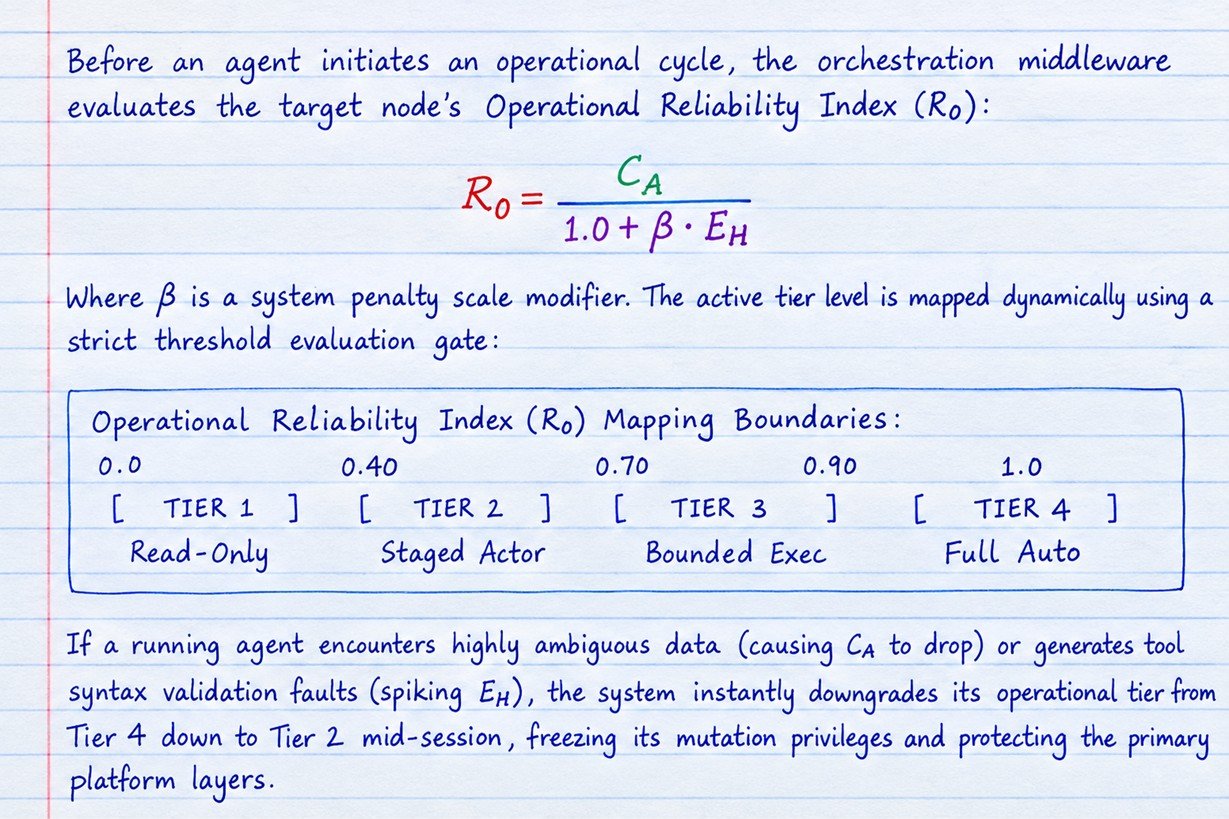 Before an agent initiates an operational cycle, the orchestration middleware
evaluates the target node's Operational Reliability Index (R₀):
R₀ = C_A / (1.0 + β · E_H)
Where β is a system penalty scale modifier. The active tier level is mapped dynamically using a
strict threshold evaluation gate:
Operational Reliability Index (R₀) Mapping Boundaries:
0.0 0.40 0.70 0.90 1.0
[ TIER 1 ] [ TIER 2 ] [ TIER 3 ] [ TIER 4 ]
Read-Only Staged Actor Bounded Exec Full Auto
If a running agent encounters highly ambiguous data (causing C_A to drop) or generates tool
syntax validation faults (spiking E_H), the system instantly downgrades its operational tier from
Tier 4 down to Tier 2 mid-session, freezing its mutation privileges and protecting the primary
platform layers.